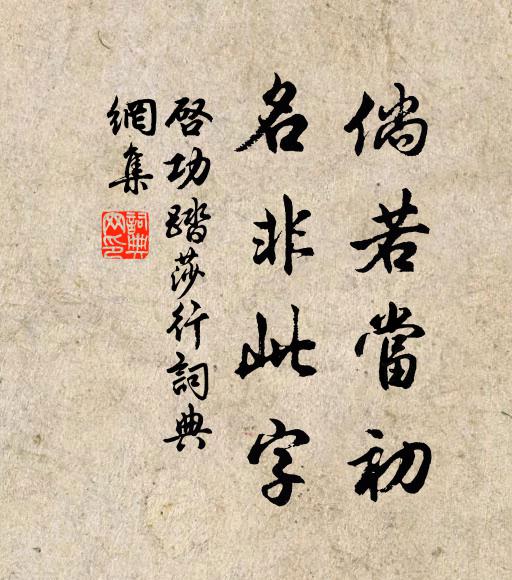 倘若當初
名非此字
啓功踏莎行詞典
網集
詞典
网印